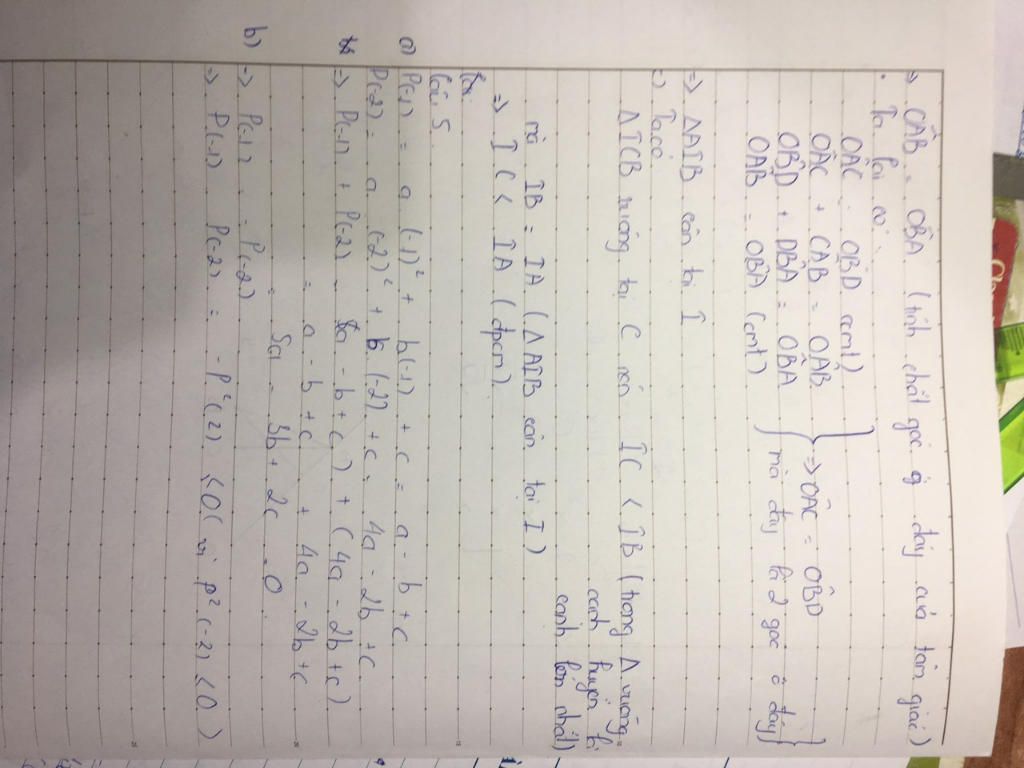 => OÂB = OB̂A (tính chất góc ở đáy của tam giác)
• Ta lại có:
OÂC = OB̂D (cmt)
OÂC + CÂB = OÂB
OB̂D + DB̂A = OB̂A
OÂB = OB̂A (cmt)
=> OÂC = OB̂D
mà đây là 2 góc ở đáy
=> ΔAIB cân tại I
c) Ta có
ΔICB vuông tại C nên IC < IB (trong Δ vuông
cạnh huyền là
cạnh lớn nhất)
mà IB = IA (ΔAIB cân tại I)
=> IC < IA (đpcm).
Câu 5
a) P(-1) = a (-1)² + b(-1) + c = a - b + c
P(-2) = a (-2)² + b (-2) + c = 4a - 2b + c
=> P(-1) + P(-2) = (a - b + c) + (4a - 2b + c)
= a - b + c + 4a - 2b + c
= 5a - 3b + 2c = 0
b) => P(-1) = - P(-2)
=> P(-1) P(-2) = - P²(2) < 0 (vì P²(-2) < 0)